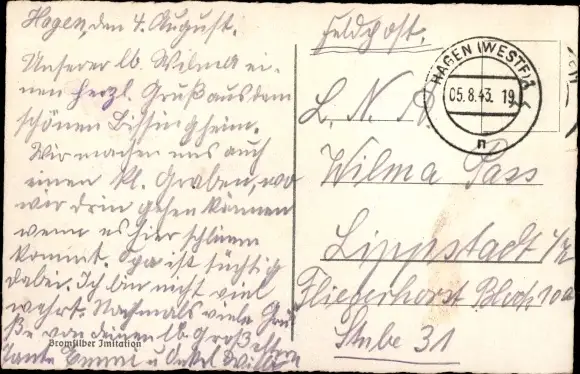 Hagen, den 4. August.
Unserer lb. Wilma ei-
nen herzl. Gruß aus dem
schönen Bissingheim.
Wir machen uns auch
einen kl. Graben, wo
wir drin gehen können
wenn es hier schlimm
kommt. Opa ist tüchtig
dabei. Ich bin nicht viel
wehrt. Nochmals viele Grü-
ße von deinen lb. Großeltern
Tante Emmi u Onkel Willi
Bromsilber Imitation
Feldpost.
HAGEN (WESTF) 1
05.8.43. 19
n
L. N.
Wilma Pass
Lippstadt i/W
Fliegerhorst Block 10a
Stube 31